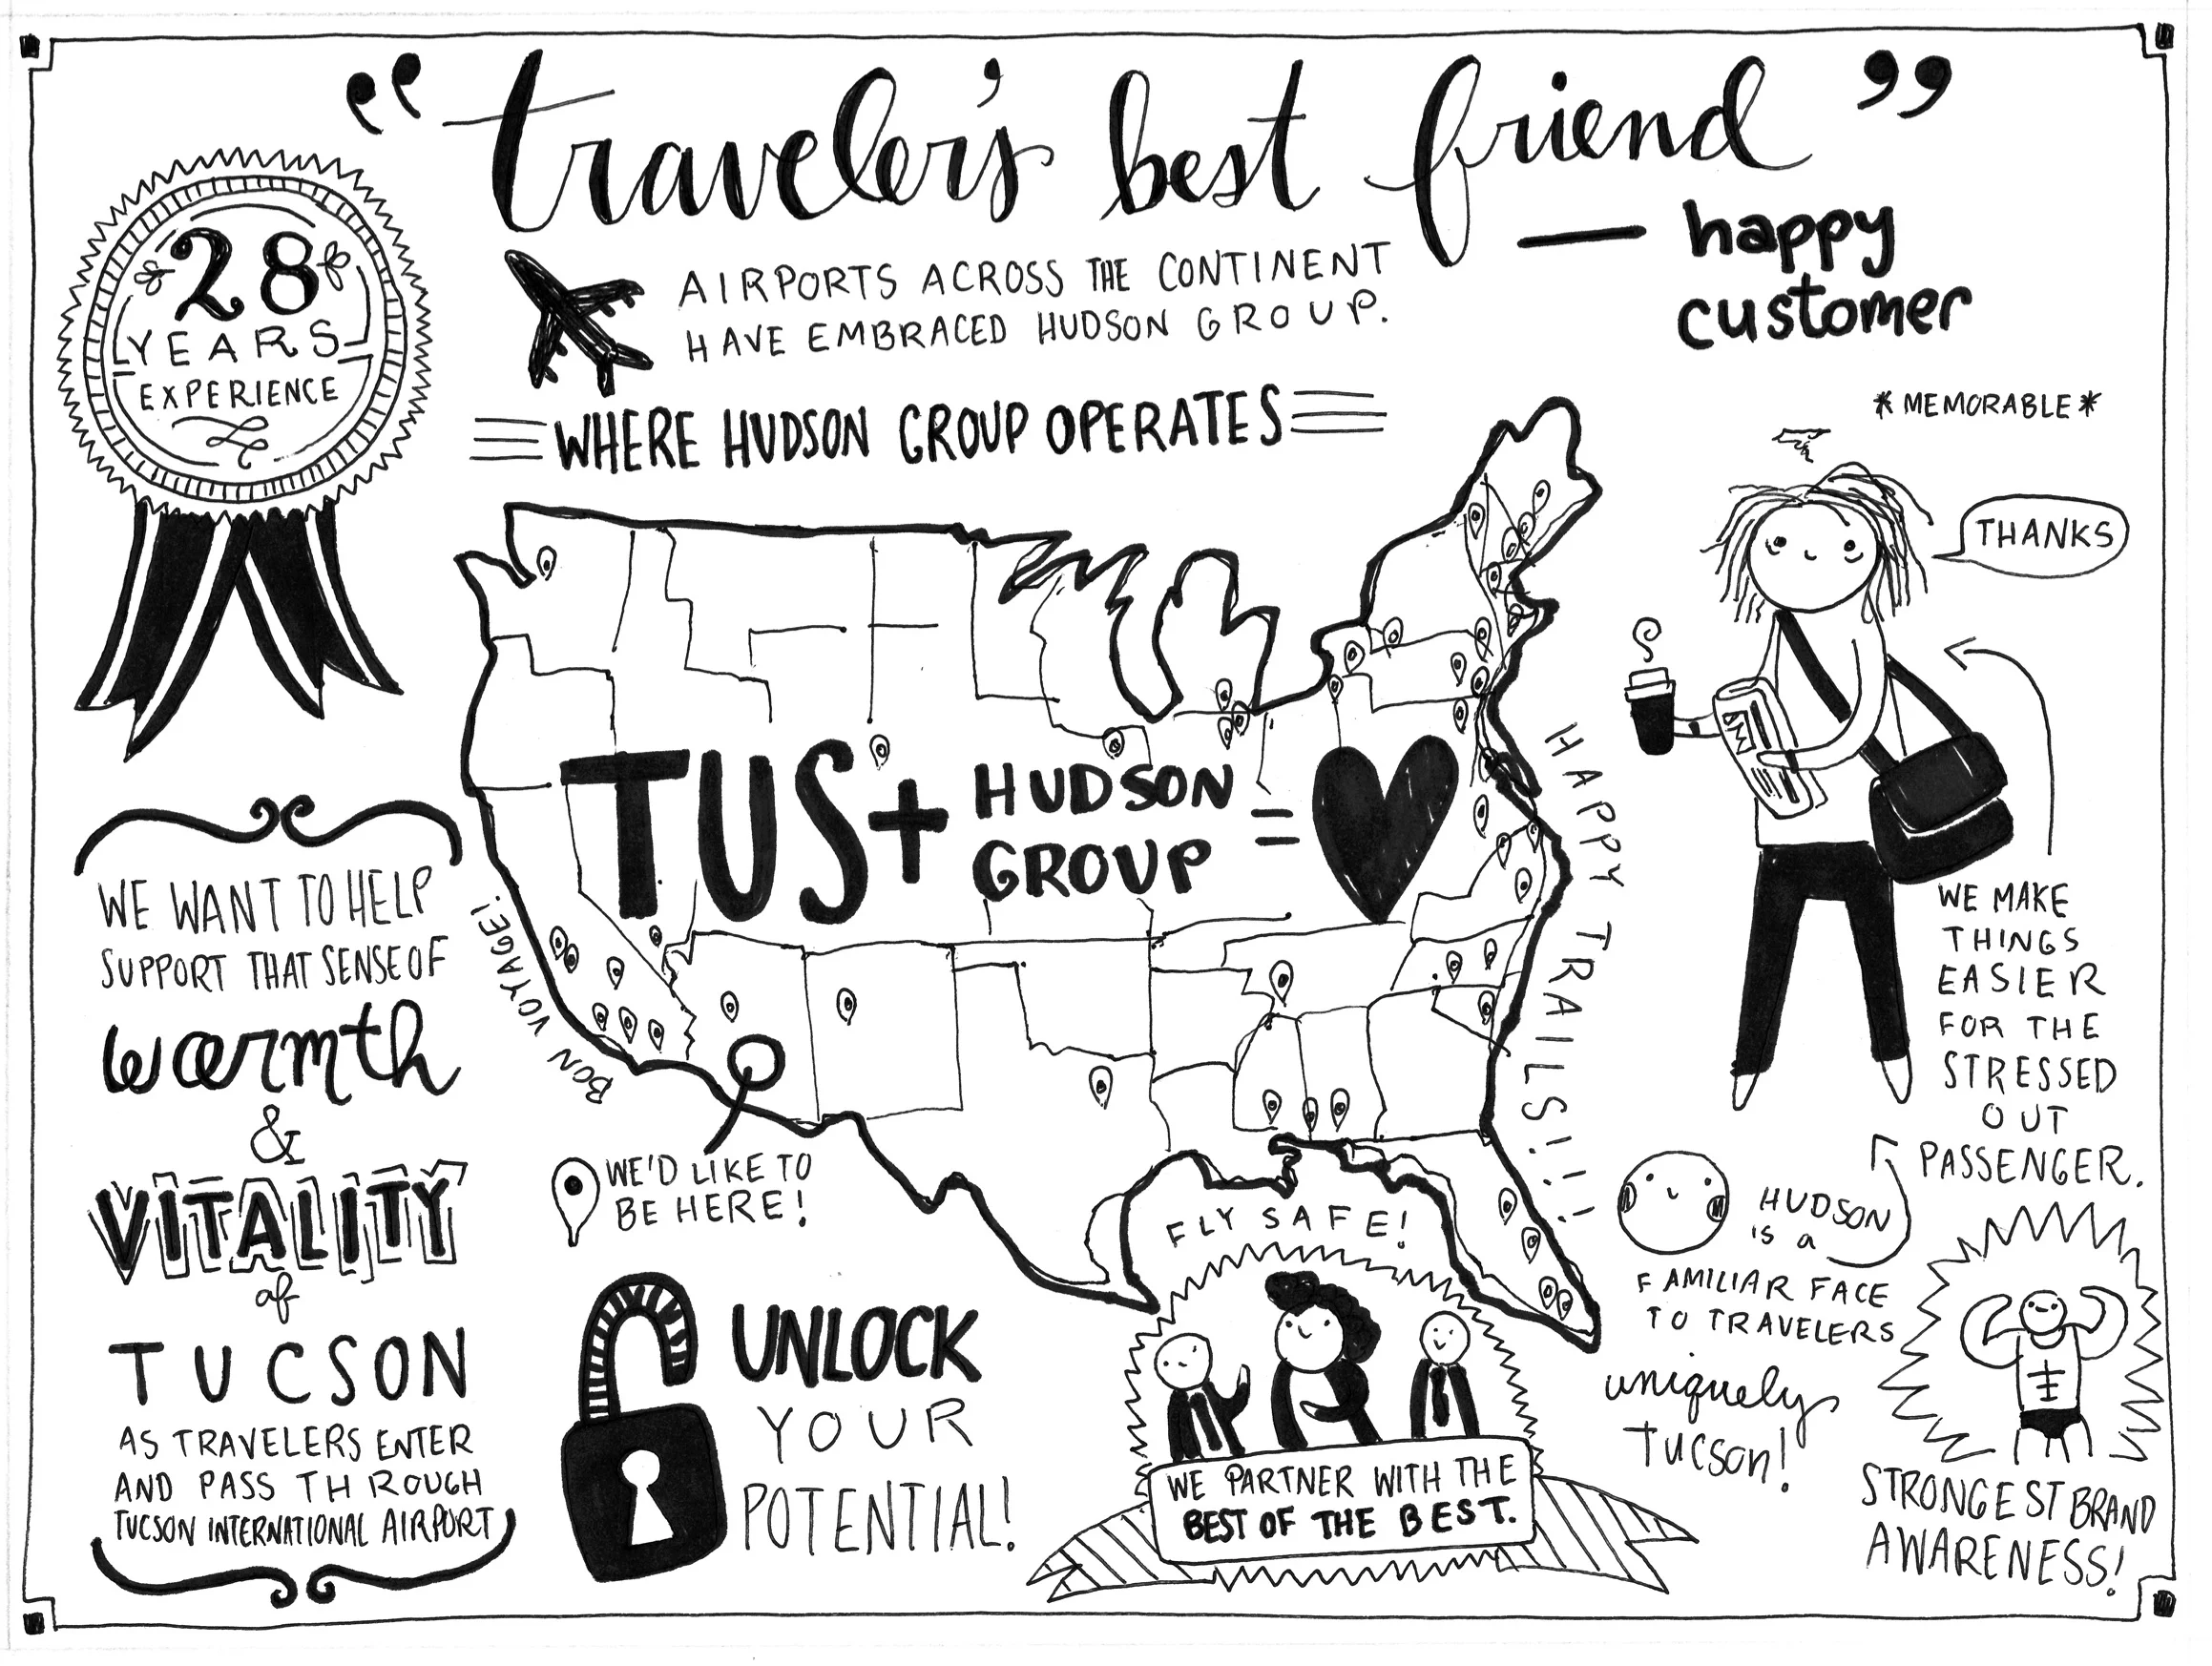 “traveler's best friend”
— happy
customer
28
YEARS
EXPERIENCE
AIRPORTS ACROSS THE CONTINENT
HAVE EMBRACED HUDSON GROUP.
WHERE HUDSON GROUP OPERATES
*MEMORABLE*
THANKS
TUS + HUDSON
GROUP = 
BON VOYAGE!
HAPPY TRAILS!!!
WE'D LIKE TO
BE HERE!
FLY SAFE!
WE WANT TO HELP
SUPPORT THAT SENSE OF
warmth
&
VITALITY
of
TUCSON
AS TRAVELERS ENTER
AND PASS THROUGH
TUCSON INTERNATIONAL AIRPORT
UNLOCK
YOUR
POTENTIAL!
WE PARTNER WITH THE
BEST OF THE BEST.
WE MAKE
THINGS
EASIER
FOR THE
STRESSED
OUT
PASSENGER.
HUDSON
IS a
FAMILIAR FACE
TO TRAVELERS
uniquely
Tucson!
STRONGEST BRAND
AWARENESS!